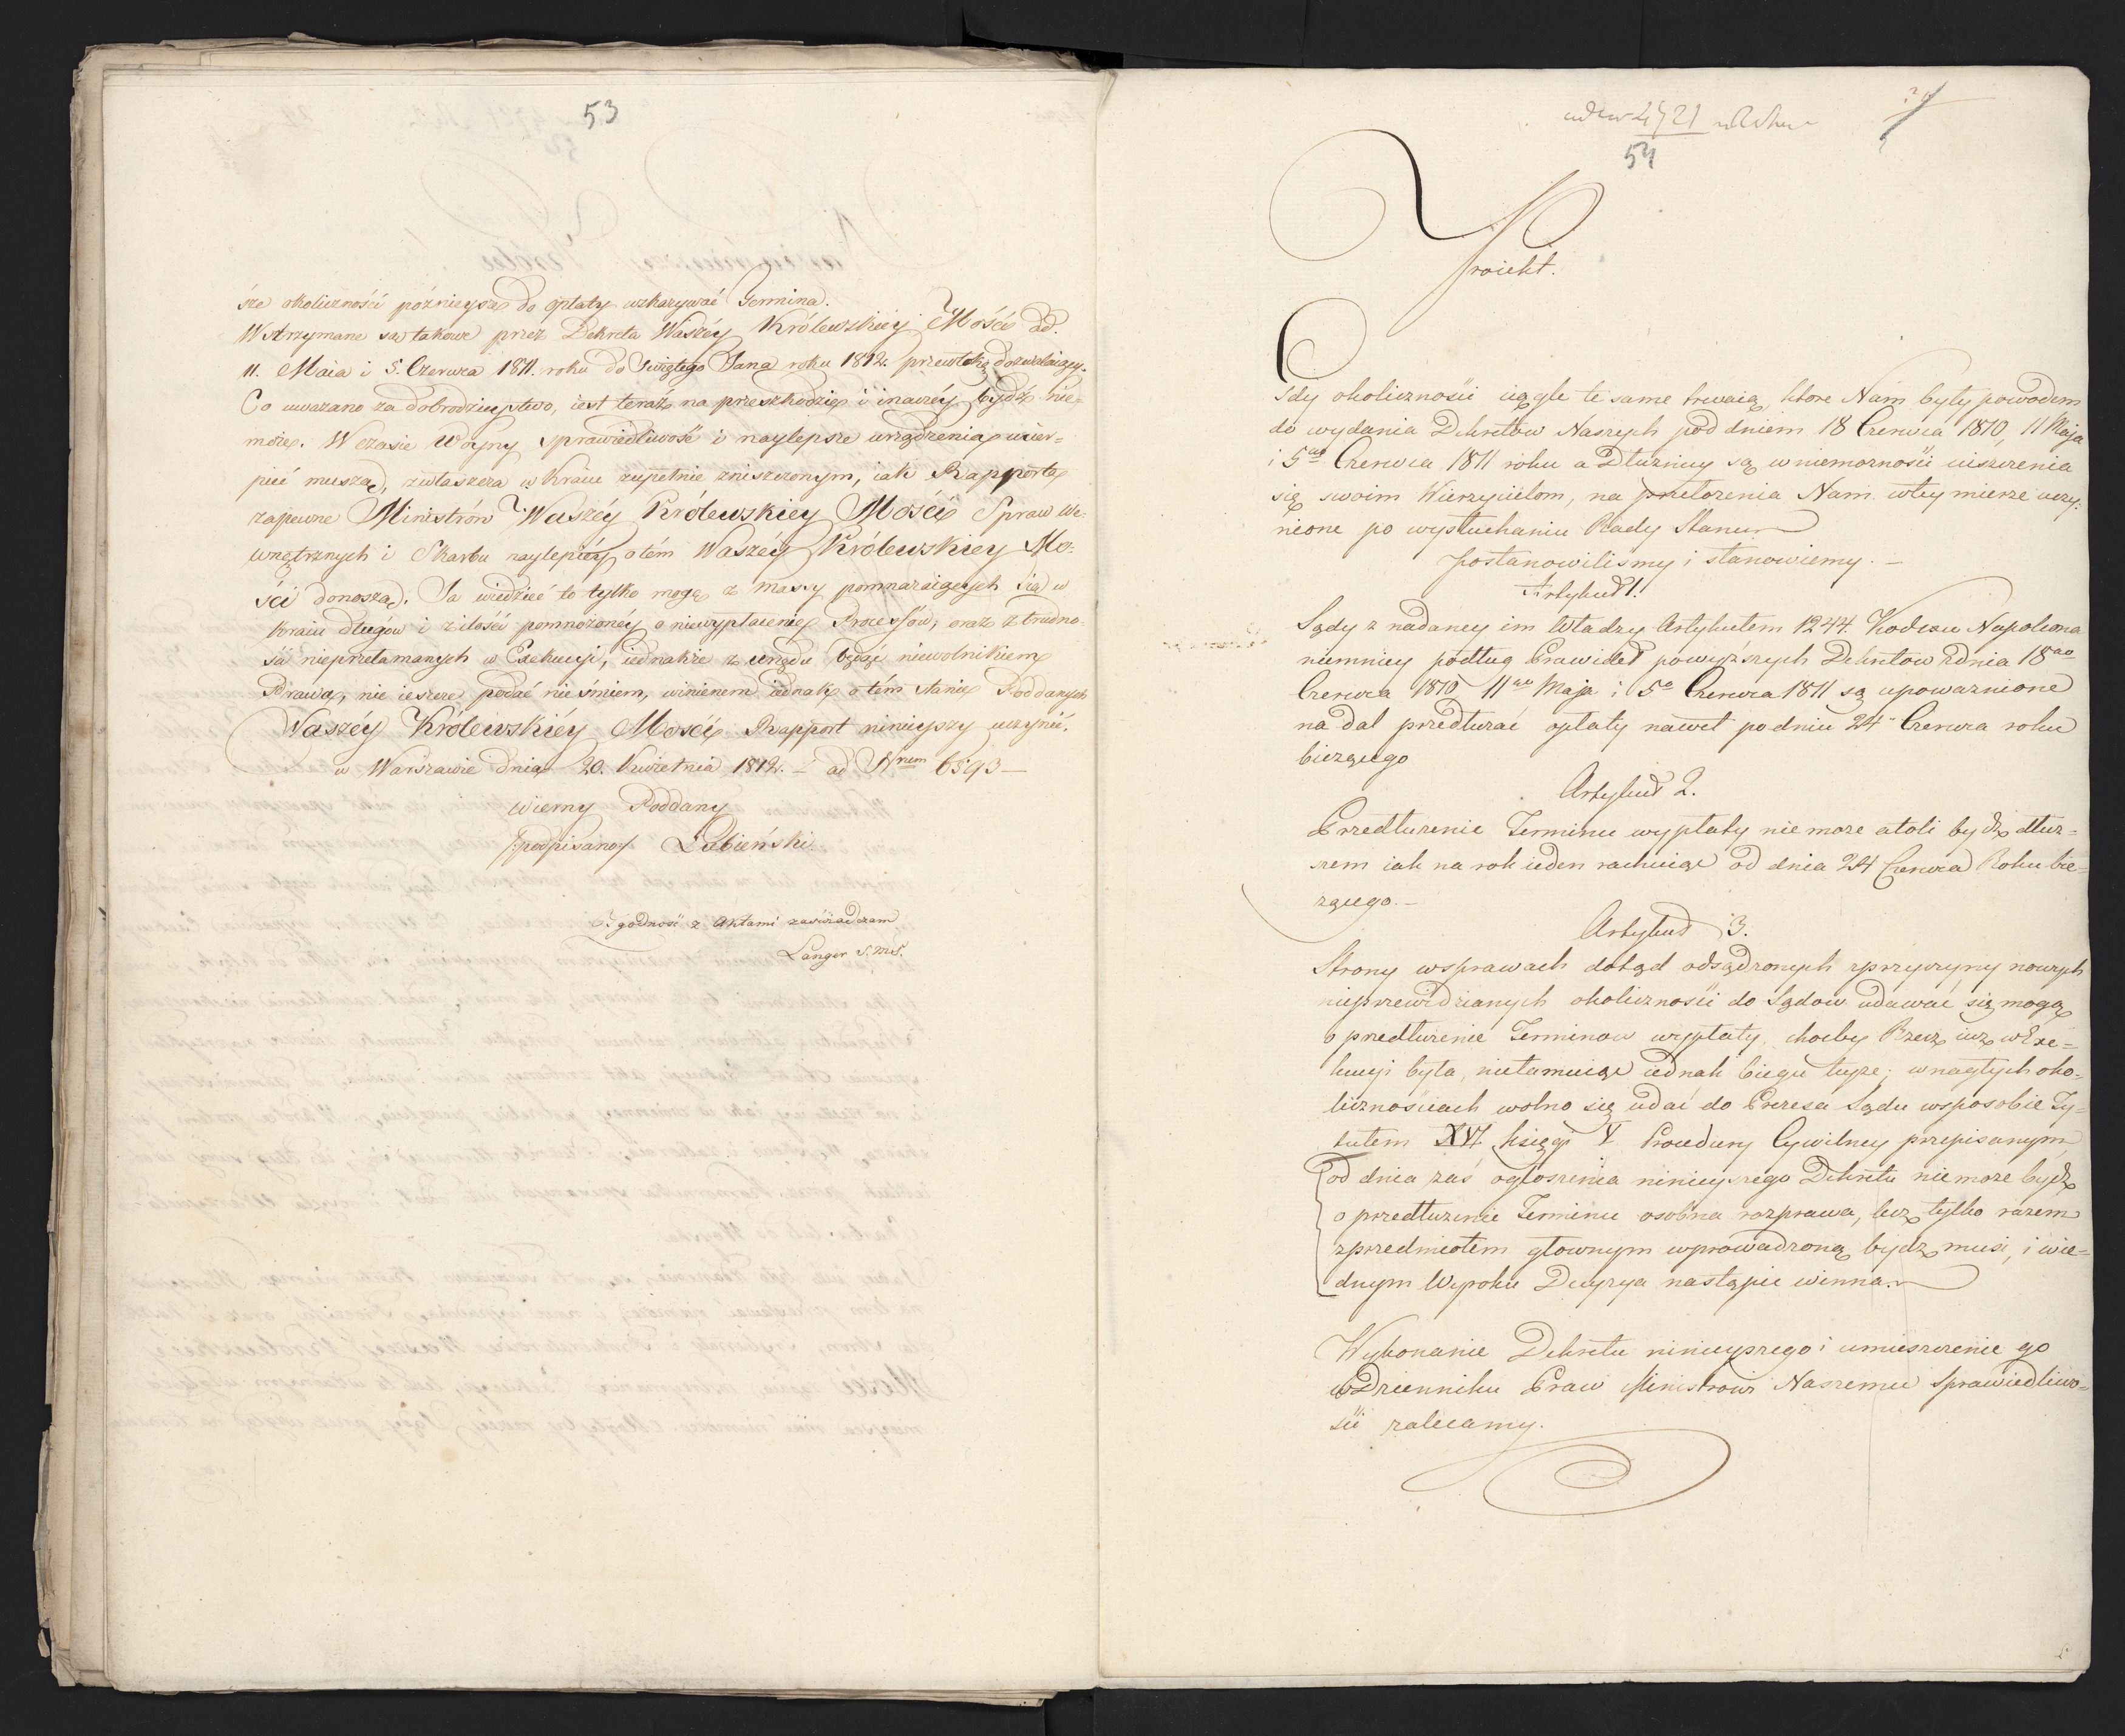 53
sze okoliczności poźnieysze do opłaty wskazywać Termina.
Wstrzymane są takowe przez Dekreta Waszéy Królewskiéy Mości dd.
11. Maia i 5. Czerwca 1811. roku do Swiętego Jana roku 1812. przewłokę dozwalaiący.
Co uważano za dobrodzieystwo, iest teraz na przeszkodzie i inaczéy bydź nie-
może. W czasie Woyny sprawiedliwość i naylepsze urządzenia ucier-
pieć muszą, zwłaszcza w Kraiu zupełnie zniszczonym, iak Rapporta
zapewne Ministrów Waszéy Królewskiey Mości Spraw We-
wnętrznych i Skarbu naylepiéy o tém Waszéy Królewskiey Mo-
ści donoszą. Ja wiedzieć to tylko mogę z massy pomnażaiących się w
kraiu długów i z ilości pomnożonéy o niewypłacenie Processów, oraz z trudno-
ści nieprzełamanych w Exekucyi, iednakże z urzędu będąc niewolnikiem
Prawa, nic ieszcze podać nieśmiem, winienem iednak o tém stanie Poddanych
Waszéy Królewskiéy Mości Rapport ninieyszy uczynić.
w Warszawie dnia 20. Kwietnia 1812. – ad Nrum 6593 –
wierny Poddany
/podpisano/ Łubieński.
Zgodność z Aktami zaświadczam
Langer S. M. S.
4721
54
Proiekt.
Gdy okoliczności ciągle te same trwaią, ktore Nam były powodem
do wydania Dekretów Naszych pod dniem 18 Czerwca 1810, 11 Maja
i 5go Czerwca 1811 roku a Dłużnicy są w niemożności uiszczenia
się swoim Wierzycielom, na przełożenia Nam w tey mierze uczy-
nione po wysłuchaniu Rady Stanu
postanowilismy i stanowiemy. –
Artykuł 1.
Sądy z nadaney im Władzy Artykułem 1244. Kodexu Napoleona
niemniey podług Prawideł powyższych Dekretow z dnia 18go
Czerwca 1810 11go Maja i 5o Czerwca 1811 są upoważnione
na dal przedłużać opłaty nawet po dniu 24 Czerwca roku
bieżącego
Artykuł 2.
Przedłużenie Terminu wypłaty nie może atoli bydź dłuż-
szem iak na rok ieden rachuiąc od dnia 24 Czerwca Roku bie-
żącego. –
Artykuł 3.
Strony w sprawach dotąd osądzonych z przyczyny nowych
nieprzewidzianych okoliczności do Sądow udawać się mogą
o przedłużenie Terminow wypłaty, choćby Rzecz iuż w Exe-
kucyi była, nietamuiąc iednak biegu teyże; w nagłych oko-
licznościach wolno się udać do Prezesa Sądu w sposobie Ty-
tułem XVI. księgi V Procedury Cywilney przepisanym,
od dnia zaś ogłoszenia ninieyszego Dekretu nie może bydź
o przedłużenie Terminu osobna rozprawa, lecz tylko razem
z przedmiotem głownym wprowadzoną bydź musi, i w ie-
dnym Wyroku Decyzya nastąpić winna.
Wykonanie Dekretu ninieyszego i umieszczenie go
w Dzienniku Praw Ministrowi Naszemu Sprawiedliwo-
ści zalecamy.